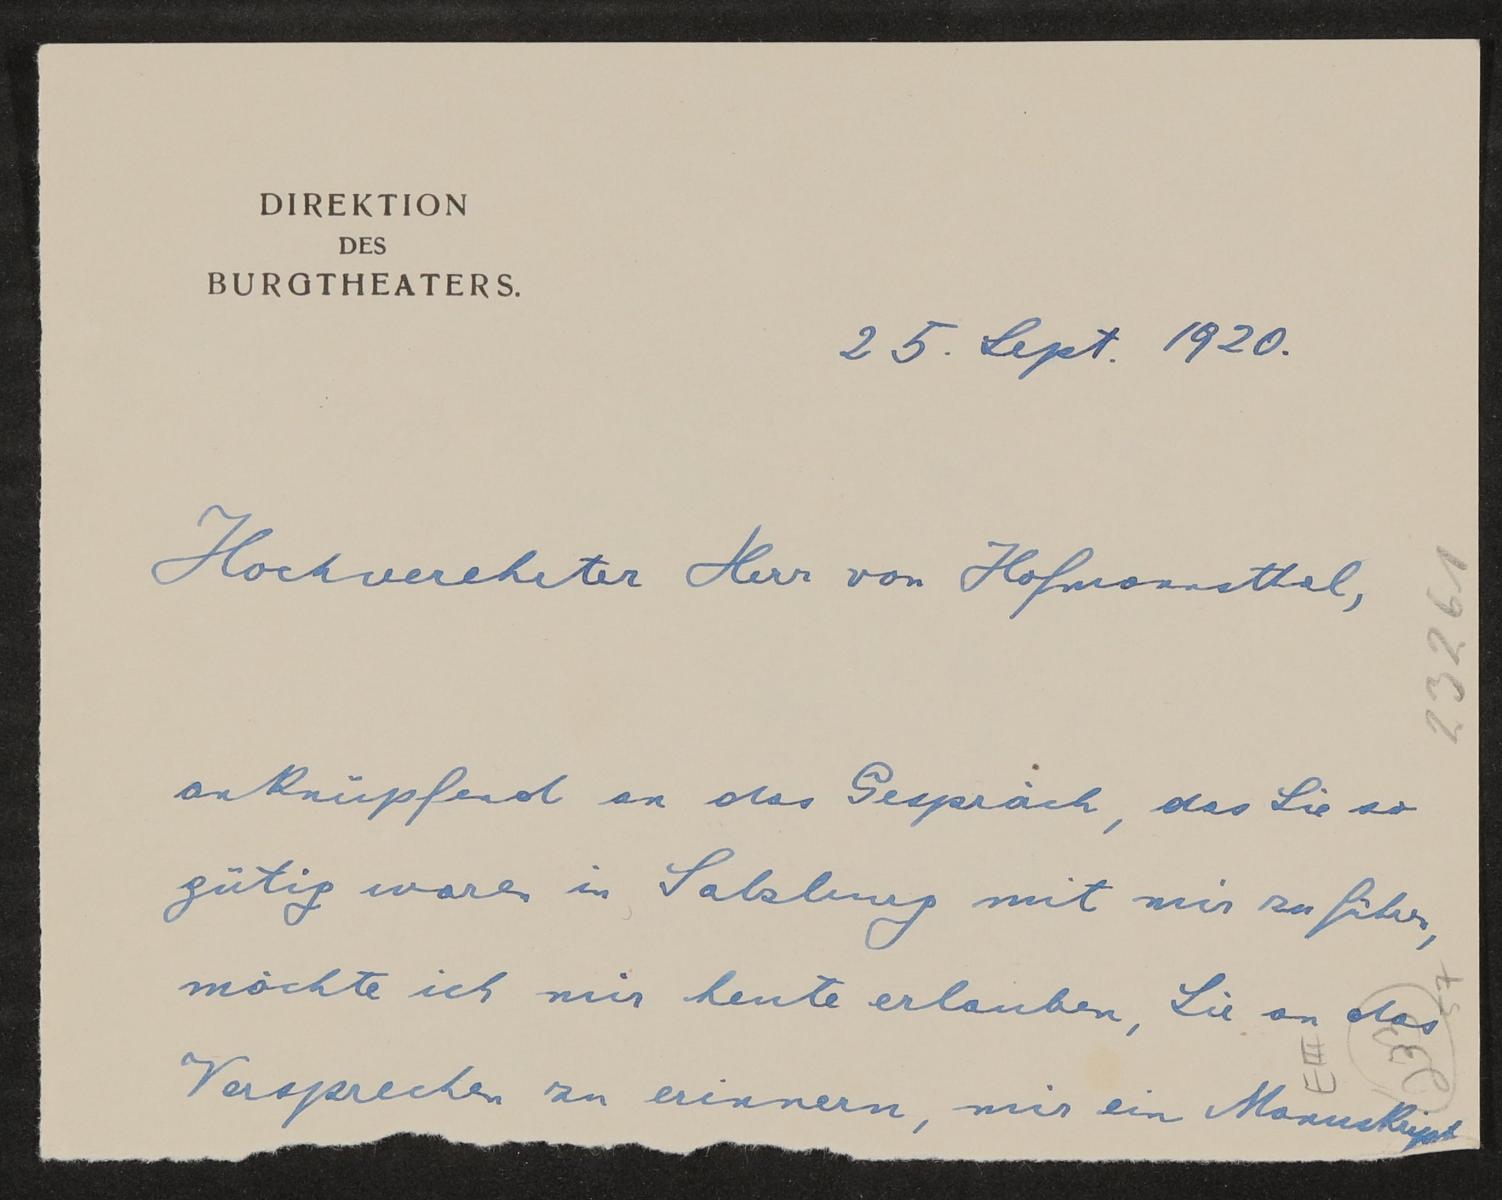 DIREKTION
DES
BURGTHEATERS.
25. Sept. 1920.
Hochverehrter Herr von Hofmannsthal,
anknüpfend an das Gespräch, das Sie so
gütig waren in Salzburg mit mir zu führen,
möchte ich mir heute erlauben, Sie an das
Versprechen zu erinnern, mir ein Manuskript
23261
EIII
57